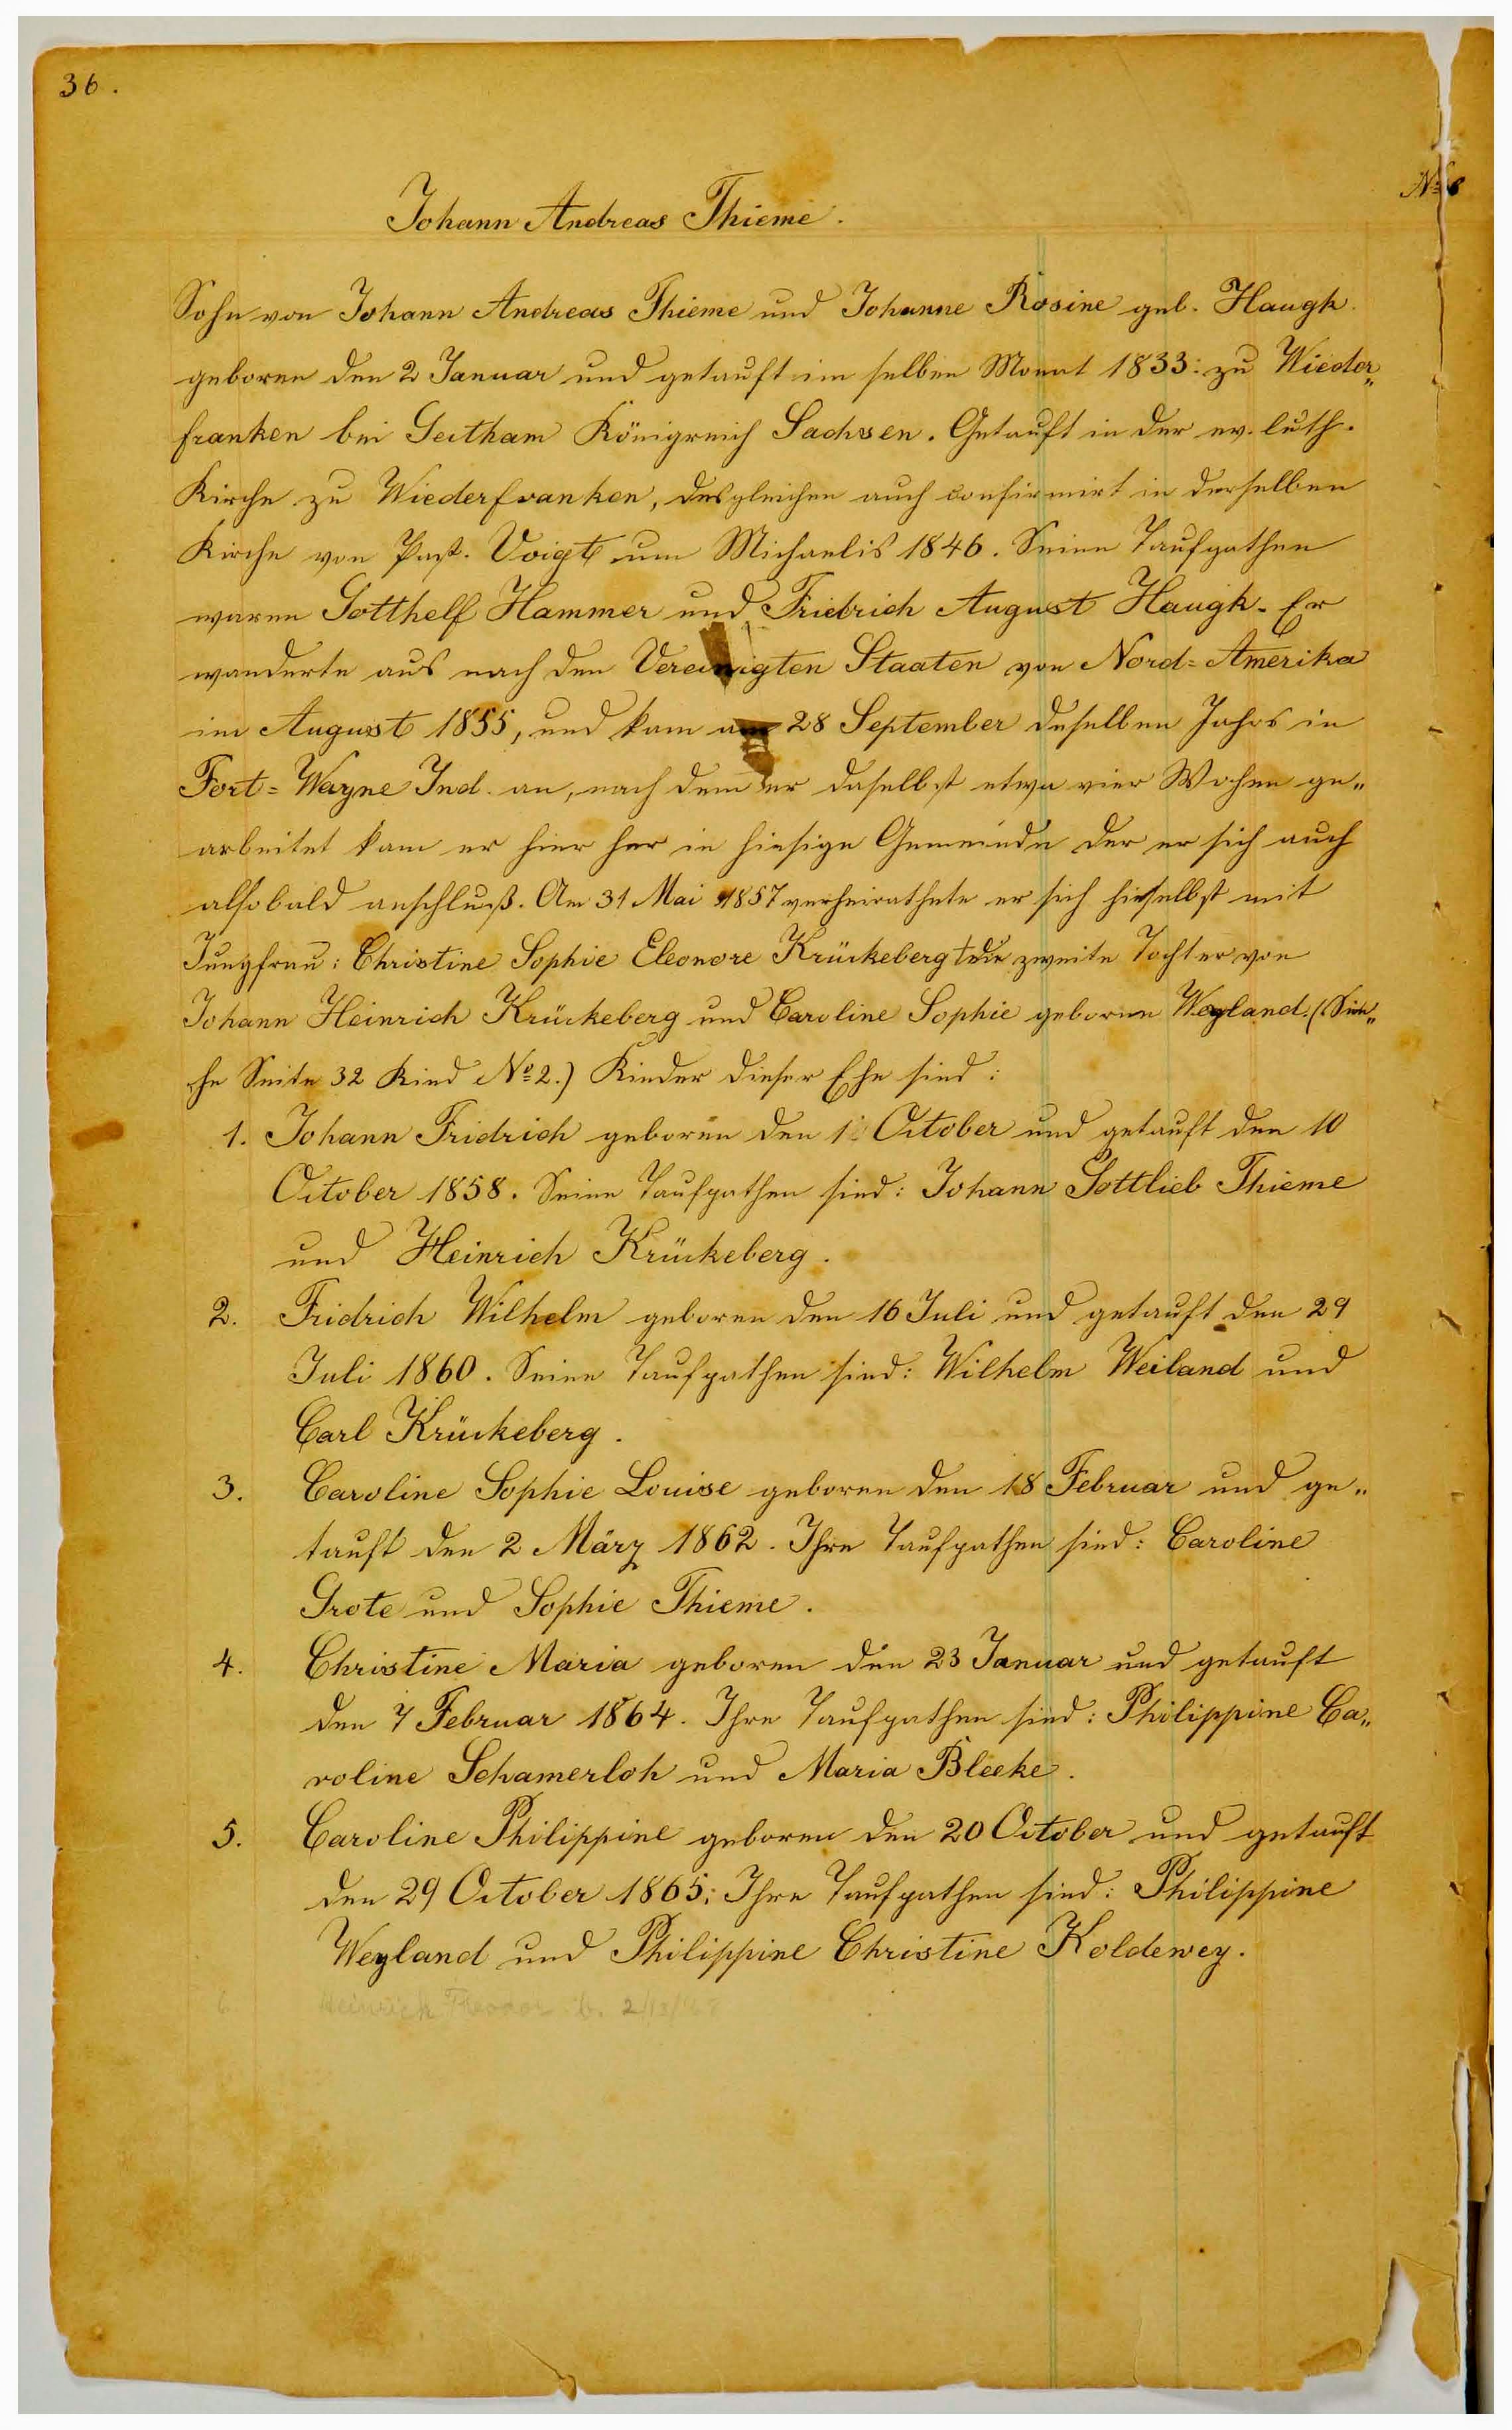 36.
No
Johann Andreas Thieme.
Sohn von Johann Andreas Thieme und Johanne Rosine geb. Haugk.
geboren den 2 Januar und getauft im selben Monat 1833: zu Wieder„
franken bei Geitham Königreich Sachsen. Getauft in der ev. luth.
Kirche zu Wiederfranken, desgleichen auch confirmirt in derselben
Kirche von Past. Voigt um Michaelis 1846. Seine Taufpathen
waren Gotthelf Hammer und Friedrich August Haugk. Er
wanderte aus nach den Vereinigten Staaten von Nord=Amerika
im August 1855, und kam am 28 September deselben Jahrs in
Fort=Wayne Ind. an, nach dem er daselbst etwa vier Wochen ge„
arbeitet kam er hier her in hiesige Gemeinde der er sich auch
alsobald anschluß. Am 31 Mai 1857 verheirathete er sich hieselbst mit
Jungfrau: Christine Sophie Eleonore Krückeberg die zweite Tochter von
Johann Heinrich Krückeberg und Caroline Sophie geborne Weyland. (Sie„
he Seite 32 Kind No 2.) Kinder dieser Ehe sind:
1. Johann Fridrich geboren den 1 October und getauft den 10
October 1858. Seine Taufpathen sind: Johann Gottlieb Thieme
und Heinrich Krückeberg.
2. Fridrich Wilhelm geboren den 16 Juli und getauft den 29
Juli 1860. Seine Taufpathen sind: Wilhelm Weiland und
Carl Krückeberg.
3. Caroline Sophie Louise geboren den 18 Februar und ge„
tauft den 2 März 1862. Ihre Taufpathen sind: Caroline
Grote und Sophie Thieme.
4. Christine Maria geboren den 23 Januar und getauft
den 7 Februar 1864. Ihre Taufpathen sind: Philippine Ca„
roline Schamerloh und Maria Bleeke.
5. Caroline Philippine geboren den 20 October und getauft
den 29 October 1865; Ihre Taufpathen sind: Philippine
Weyland und Philippine Christine Koldewey.
6. Heinrich Theodor b.